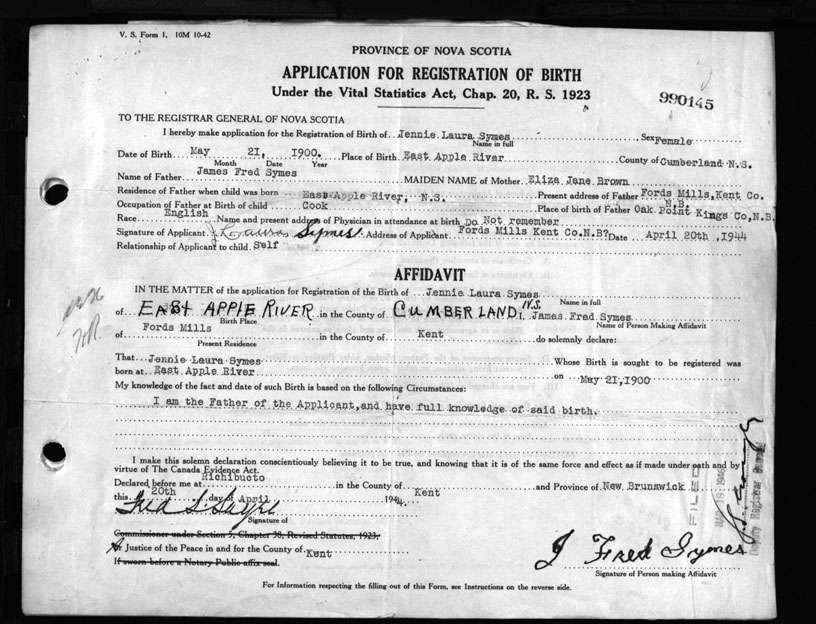 V. S. Form 1. 10M 10-42
PROVINCE OF NOVA SCOTIA
APPLICATION FOR REGISTRATION OF BIRTH
Under the Vital Statistics Act, Chap. 20, R. S. 1923
990145
TO THE REGISTRAR GENERAL OF NOVA SCOTIA
I hereby make application for the Registration of Birth of Jennie Laura Symes Sex Female
Name in full
Date of Birth May 21, 1900. Place of Birth East Apple River County of Cumberland N.S.
Month Date Year
Name of Father James Fred Symes MAIDEN NAME of Mother Eliza Jane Brown
Residence of Father when child was born East Apple River, N.S. Present address of Father Fords Mills, Kent Co. N.B.
Occupation of Father at Birth of child Cook Place of Birth of Father Oak Point Kings Co, N.B.
Race English Name and present address of Physician in attendance at birth Do Not remember
Signature of Applicant J Laura Symes Address of Applicant Fords Mills Kent Co.N.B? Date April 20th ,1944
Relationship of Applicant to child Self
AFFIDAVIT
IN THE MATTER of the application for Registration of the Birth of Jennie Laura Symes
Name in full
of EAST APPLE RIVER in the County of CUMBERLAND N.S. I, James Fred Symes
Birth Place Name of Person Making Affidavit
of Fords Mills in the County of Kent do solemnly declare:
Present Residence
That Jennie Laura Symes Whose Birth is sought to be registered was
born at East Apple River on May 21,1900
My knowledge of the fact and date of such Birth is based on the following Circumstances:
I am the Father of the Applicant,and have full knowledge of said birth.
I make this solemn declaration conscientiously believing it to be true, and knowing that it is of the same force and effect as if made under oath and by
virtue of The Canada Evidence Act.
Declared before me at Richibucto in the County of Kent and Province of New Brunswick
this 20th day of April 1944.
Signature of
Commissioner under Section 5, Chapter 38, Revised Statutes, 1923,
A Justice of the Peace in and for the County of Kent
If sworn before a Notary Public affix seal.
J Fred Symes
Signature of Person making Affidavit
For Information respecting the filling out of this Form, see Instructions on the reverse side.
FILED
Deputy Registrar General